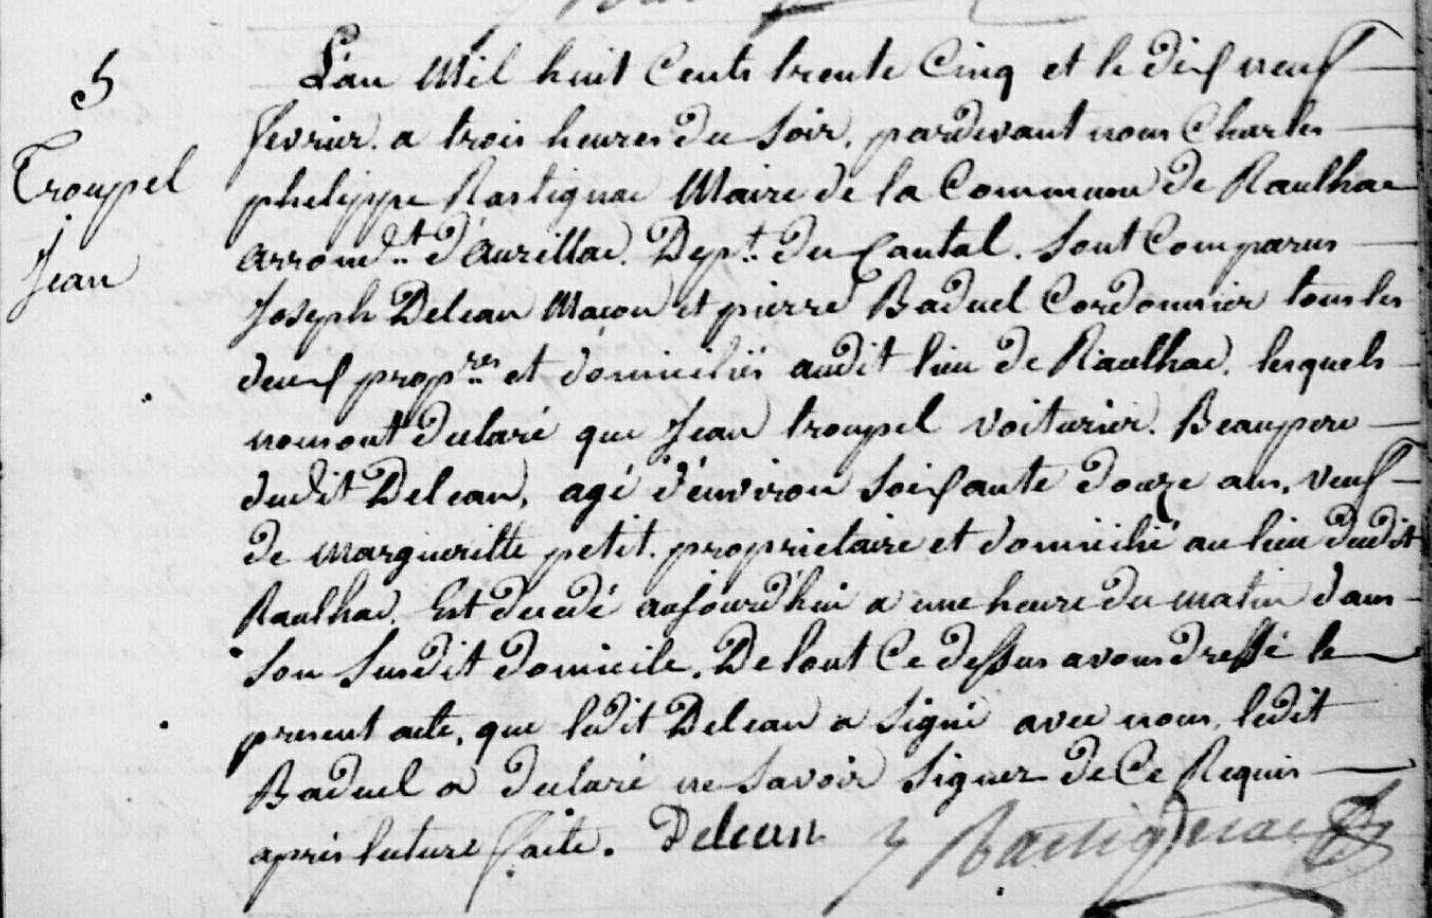 5
Troupel
Jean
L'an Mil huit Cents trente Cinq et le dix neuf
fevrier. a trois heures du soir, pardevant nous Charles
phelippe Rastignac Maire de la Commune de Raulhac
arrond.t d'Aurillac. Dep.t du Cantal. Sont Comparus
Joseph Delcan Macon et pierre Baduel Cordonnier tous les
deux prop.res et domiciliés audit lieu de Raulhac. lesquels
nous ont declaré que Jean troupel voiturier. Beaupere
dudit Delcan, agé d'environ soixante douze ans, veuf
de margueritte petit. proprietaire et domicilié au lieu dudit
Raulhac. Est decedé aujourd'hui a une heure du matin dans
son susdit domicile. De tout Ce dessus avons dressé le
present acte, que ledit Delcan a signé avec nous, ledit
Baduel a declaré ne savoir signer de Ce Requis
apres lecture faite. Delcan Rastignac